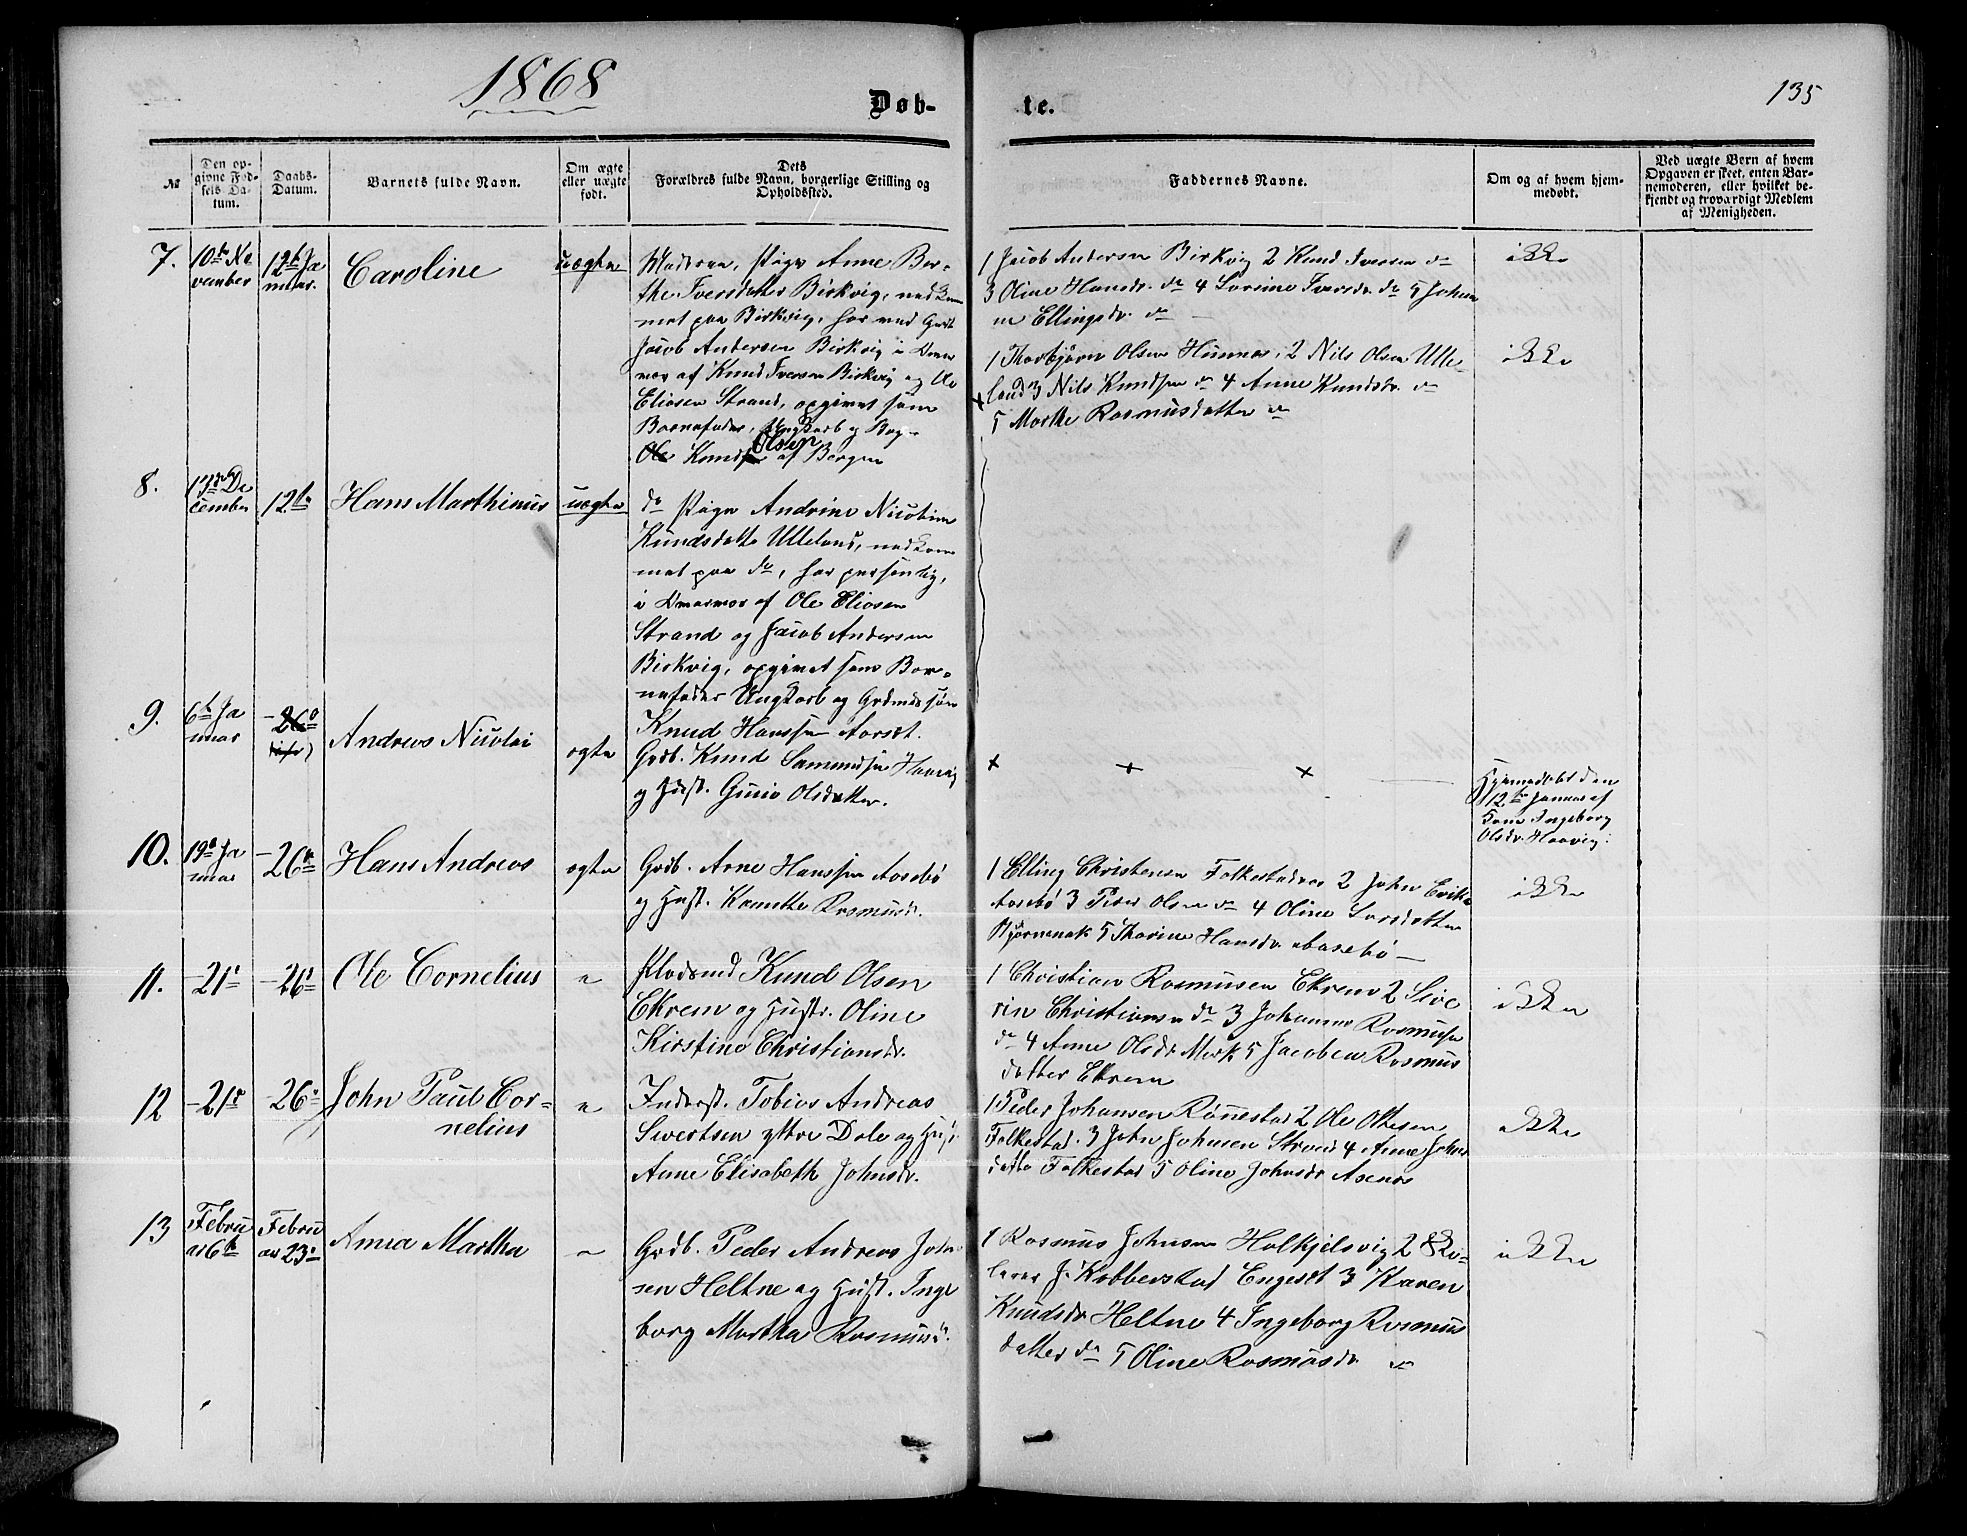 1868
135
Døb-
te.
№
Den op-
givne Fød-
sels Da-
tum.
Daabs-
Datum.
Barnets fulde Navn.
Om ægte
eller uægte
født.
Dets
Forældres fulde Navn, borgerlige Stilling og
Opholdssted.
Faddernes Navne.
Om og af hvem hjem-
medøbt.
Ved uægte Børn af hvem
Opgaven er skeet, enten Bar-
nemoderen, eller hvilket be-
kjendt og troværdigt Medlem
af Menigheden.
7.
10de No
vember
12te Ja
nuar.
Caroline
uægte
Moderen, Pige Anne Ber-
the Iversdatter Birkvig, nedkom
met paa Birkvig, har ved Grdb
Jacob Andersen Birkvig i Nærvær
vær af Knud Iversen Birkvig og Ole
Eliasen Strand, opgivet som
Barnefader, Ungkarl og
Ole Knud Olsen af Bergen
1 Jacob Andersen Birkvig 2 Knud Iversen do
3 Oline Hansdr. do 4 Iversdr do 5 Johan
ne Ellingsdr. do
ikke
1 Thorbjørn Olsen Hunnes, 2 Nils Olsen Ulle-
land 3 Nils Knudsen do 4 Anne Knudsdr. do
5 Marthe Rasmusdatter do
ikke
8.
13de De
cember
12te
Hans Marthinus
uægte
do Pige Andrine Nicoline
Knudsdatter Ulleland, nedkom
met paa do, har personlig,
i Nærvær af Ole Eliasen
Strand og Jacob Andersen
Birkvig, opgivet som Bar-
nefader Ungkarl og Grdmdssøn
Knud Hanssen Aarset.
9.
6te Ja
nuar
-26
Andreas Nicolai
ægte
Grdb. Knud Samundsen Haavig
og Hust. Guri Olsdatter.
+ + +
Hjemmedøbt den
12te Januar af
Kone Ingeborg
Olsdr. Haavig.
10.
19de Ja
nuar
-26te
Hans Andreas
ægte
Grdb. Arne Hanssen Aasebø
og Hust. Rasmusdr.
1 Elling Christensen Folkestadaas 2 John Eriks
Aasebø 3 Peder Olsen do 4 Oline Larsdatter
Bjørnenak 5 Thorine Hansdr Aasebø
ikke
11.
-21de
-26de
Ole Cornelius
"
Pladsmd Knud Olsen
Ekrem og Hustr. Oline
Kirstine Christiansdr.
1 Christian Rasmussen Ekrem 2 Sive
rin Christiansen do 3 Johannes Rasmussen
do 4 Anne Olsdr Mork 5 Jacobea Rasmus
datter Ekrem
ikke
12
-21de
26de
John Paul Cor-
nelius
"
Inderst. Tobias Andreas
Sivertsen ytre Dale og Hust.
Anne Elisabeth Johnsdr.
1 Peder Johansen Rønnestad 2 Ole Ottesen
Folkestad. 3 John Johnsen Strand 4 Anne Johns
datter Folkestad 5 Oline Johnsdr Asenes
ikke
13
Febru
ar 6te
Febru
ar 23de
Anna Martha
"
Grdb. Peder Andreas John
sen Heltne og Hust. Inge
borg Martha Rasmusd.
1 Rasmus Johnsen Holkjelsvig 2 Sko-
lærer J. Kobberstad Engeset 3 Karen
Knudsdr Heltne 4 Ingeborg Rasmus
datter do 5 Oline Rasmusdr do
ikke